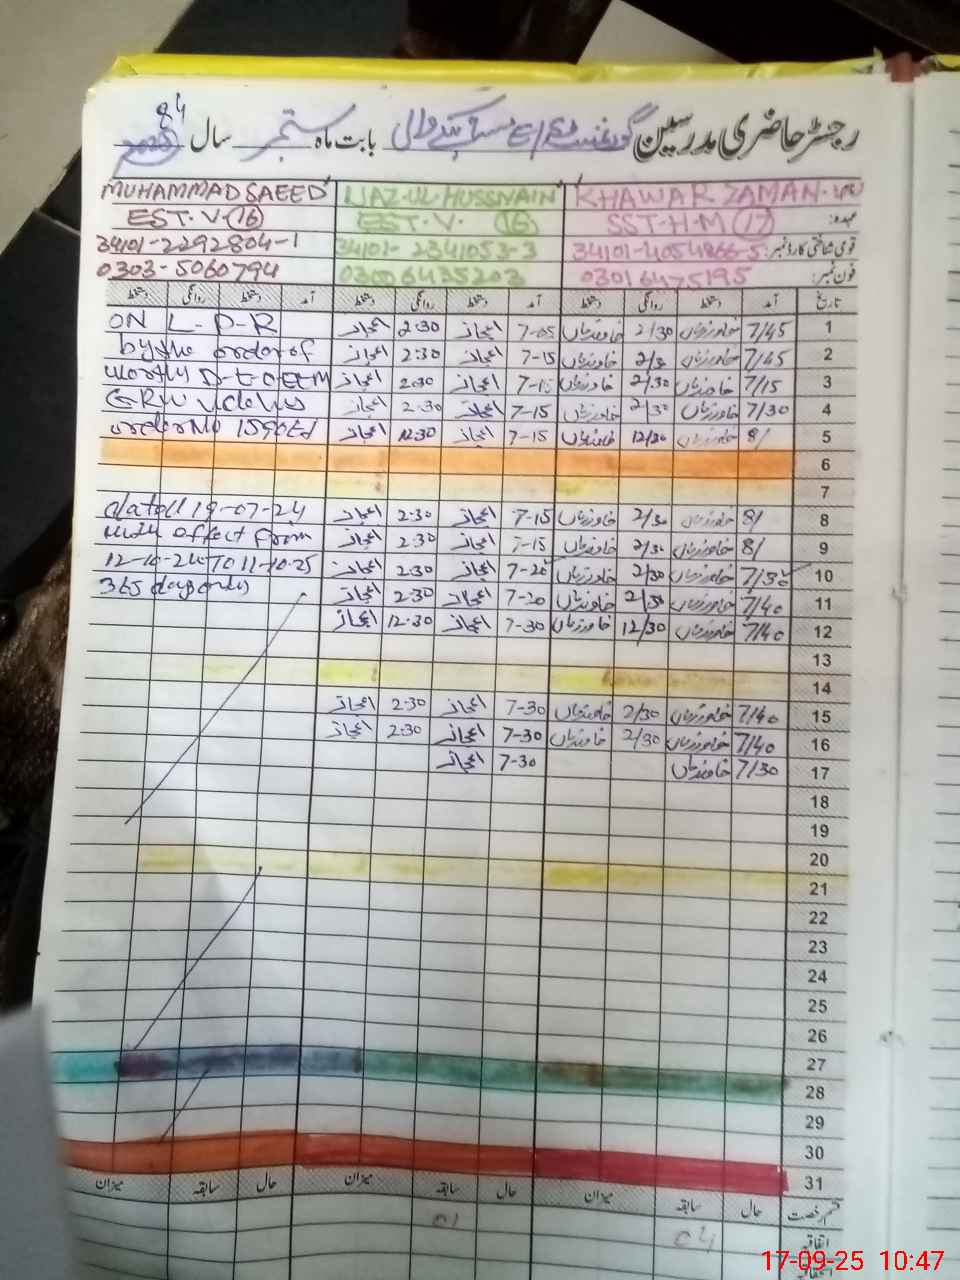 رجسٹر حاضری مدرسین گورنمنٹ بابت ماہ ستمبر سال 2025
84
MUHAMMAD SAEED IJAZ-UL-HUSSNAIN KHAWAR ZAMAN
EST.V.(16) EST.V. (16) SST-H-M (17) عہدہ:
34101-2292804-1 34101-2341053-3 34101-4054866-5 قومی شناختی کارڈ نمبر:
0303-5060794 03006435203 03016475195 فون نمبر:
دستخط روانگی دستخط آمد دستخط روانگی دستخط آمد دستخط روانگی دستخط آمد تاریخ
ON L-P-R اعجاز 2:30 اعجاز 7-05 خاورزمان 2/30 خاورزمان 7/45 1
by the order of اعجاز 2:30 اعجاز 7-15 خاورزمان 2/30 خاورزمان 7/45 2
اعجاز 2:30 اعجاز 7-15 خاورزمان 2/30 خاورزمان 7/15 3
اعجاز 2:30 اعجاز 7-15 خاورزمان 2/30 خاورزمان 7/30 4
order No 1590 اعجاز 12:30 اعجاز 7-15 خاورزمان 12/30 خاورزمان 8/ 5
6
7
19-07-24 اعجاز 2:30 اعجاز 7-15 خاورزمان 2/30 خاورزمان 8/ 8
with effect from اعجاز 2:30 اعجاز 7-15 خاورزمان 2/30 خاورزمان 8/ 9
12-10-24 TO 11-10-25 اعجاز 2:30 اعجاز 7-20 خاورزمان 2/30 خاورزمان 7/30 10
365 days اعجاز 2:30 اعجاز 7-20 خاورزمان 2/30 خاورزمان 7/40 11
اعجاز 12:30 اعجاز 7-30 خاورزمان 12/30 خاورزمان 7/40 12
13
14
اعجاز 2:30 اعجاز 7-30 خاورزمان 2/30 خاورزمان 7/40 15
اعجاز 2:30 اعجاز 7-30 خاورزمان 2/30 خاورزمان 7/40 16
اعجاز 7-30 خاورزمان 7/30 17
18
19
20
21
22
23
24
25
26
27
28
29
30
31
میزان سابقہ حال میزان سابقہ حال میزان سابقہ حال قسم رخصت
01 04 اتفاقیہ
17-09-25 10:47